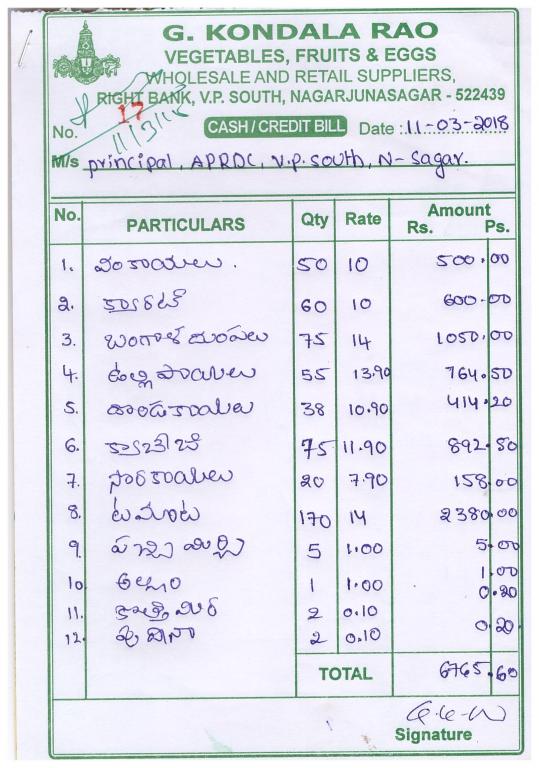 G. KONDALA RAO
VEGETABLES, FRUITS & EGGS
WHOLESALE AND RETAIL SUPPLIERS,
RIGHT BANK, V.P. SOUTH, NAGARJUNASAGAR - 522439
No. 17 CASH / CREDIT BILL Date : 11-03-2018
M/s principal, APRDC, V.P. South, N-Sagar.
No. PARTICULARS Qty Rate Amount
Rs. Ps.
1. వంకాయలు. 50 10 500.00
2. క్యారట్ 60 10 600.00
3. బంగాళదుంపలు 75 14 1050.00
4. ఉల్లిపాయలు 55 13.90 764.50
5. దొండకాయలు 38 10.90 414.20
6. క్యాబేజి 75 11.90 892.50
7. సొరకాయలు 20 7.90 158.00
8. టమాటా 170 14 2380.00
9. పచ్చిమిర్చి 5 1.00 5.00
10. అల్లం 1 1.00 1.00
11. కొత్తిమిర 2 0.10 0.20
12. పుదీనా 2 0.10 0.20
TOTAL 6765.60
Signature